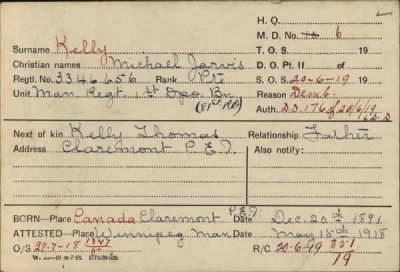 H. Q.
M. D. No. 10 6
Surname Kelly T. O. S. 19
Christian names Michael Jarvis D. O. Pt. II of 19
Regtl. No. 3346656 Rank Pte S. O. S. 20-6-19 19
Unit Man Regt. 1st Dpo. Bn Reason Demb.
Auth. D.D. 176 of 25/6/19
Next of kin Kelly Thomas Relationship Father
Address Claremont P.E.I. Also notify:
BORN—Place Canada Claremont P.E.I. Date Dec. 20th 1891
ATTESTED—Place Winnipeg Man Date May 15th 1918
O/S 29-7-18 R/C 20-6-19 351
19